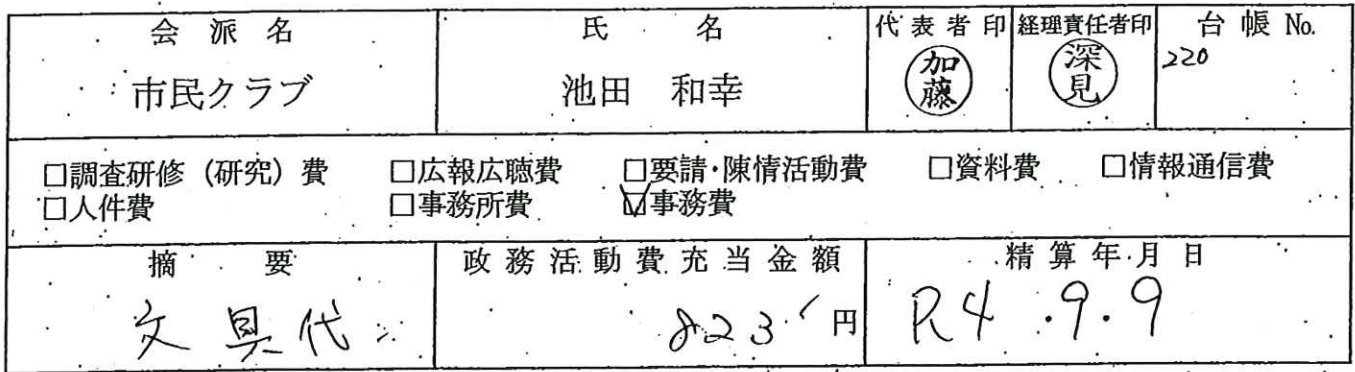 会派名 氏名 代表者印 経理責任者印 台帳No.
市民クラブ 池田 和幸 加藤 深見 220
□調査研修（研究）費 □広報広聴費 □要請・陳情活動費 □資料費 □情報通信費
□人件費 □事務所費 ☑事務費
摘要 政務活動費充当金額 精算年月日
文具代 823円 R4.9.9